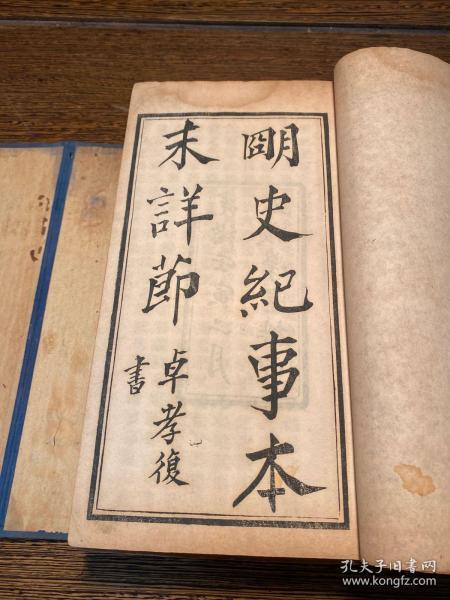 朙史紀事本
末詳節
卓孝復
書
孔夫子旧书网
www.kongfz.com